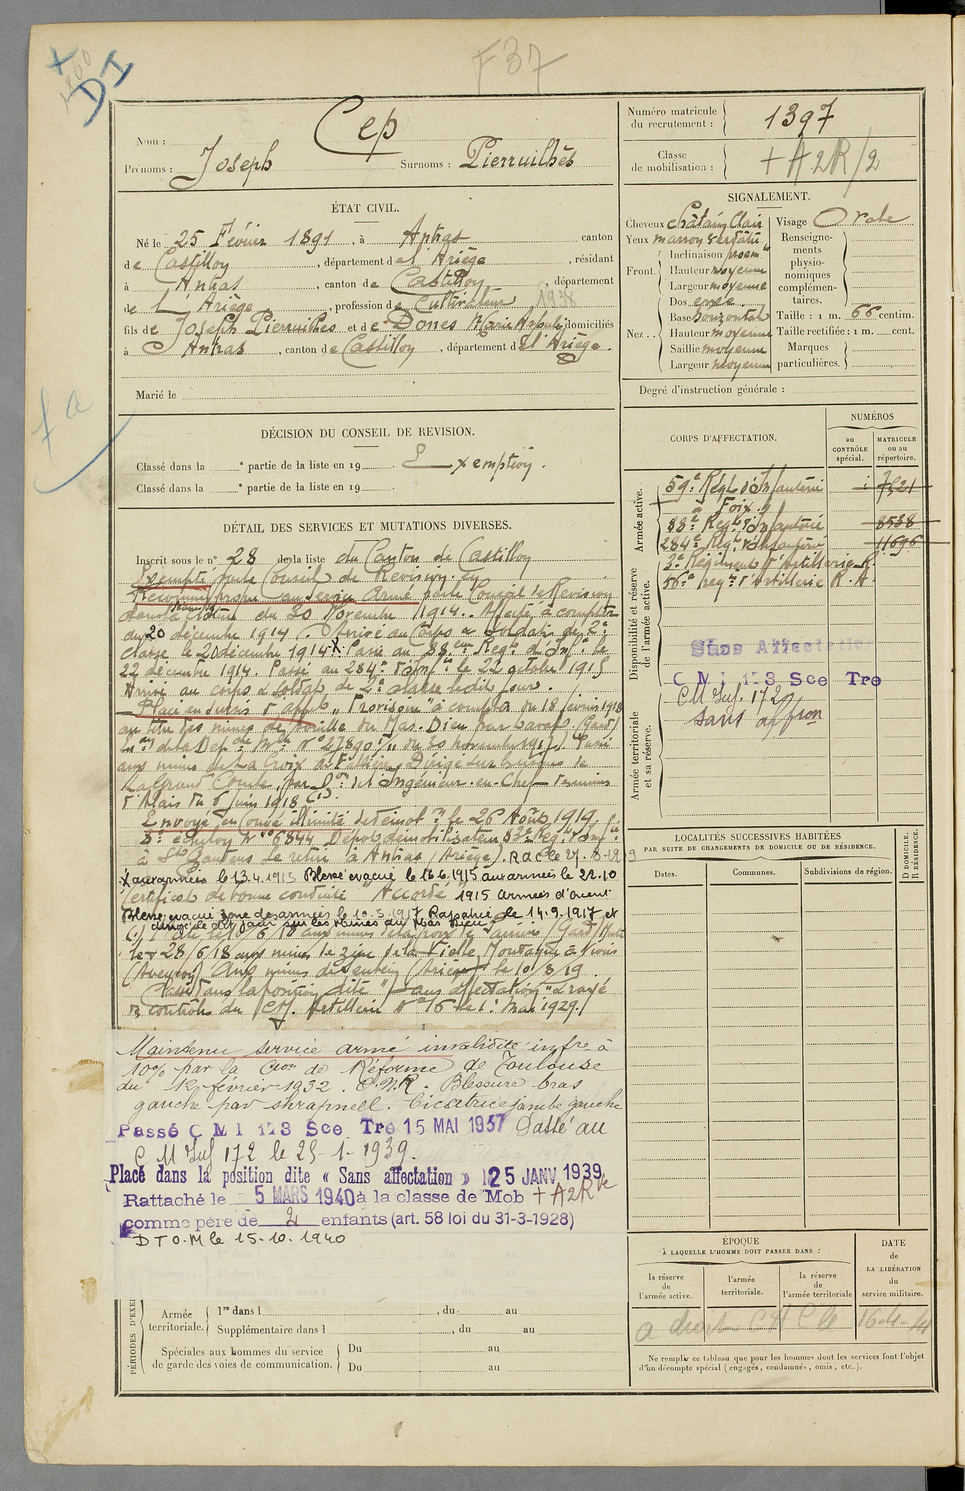 F 37
DI
Nom : Cep
Prénoms : Joseph Surnoms : Pierruilhès
Numéro matricule du recrutement : 1397
Classe de mobilisation : + A2R/2
ÉTAT CIVIL.
Né le 25 Février 1891, à Antras canton
de Castillon, département de l'Ariège, résidant
à Antras, canton de Castillon, département
de L'Ariège, profession de Cultivateur
fils de Joseph Pierruilhès et de Dones Marie domiciliés
à Antras, canton de Castillon, département de l'Ariège.
Marié le
SIGNALEMENT.
Cheveux châtain clair
Yeux marron
Front.
Inclinaison
Hauteur moyenne
Largeur moyenne
Nez..
Dos
Base horizontale
Hauteur moyenne
Saillie moyenne
Largeur moyenne
Visage Ovale
Renseignements physionomiques complémentaires.
Taille : 1 m. 66 centim.
Taille rectifiée : 1 m. cent.
Marques particulières.
Degré d'instruction générale :
DÉCISION DU CONSEIL DE REVISION.
Classé dans la e partie de la liste en 19 Exemption.
Classé dans la e partie de la liste en 19 .
CORPS D'AFFECTATION.
NUMÉROS
au CONTRÔLE spécial.
MATRICULE ou au répertoire.
Armée active.
59e Régt d'Infanterie 7521
à Foix
88e Regt d'Infanterie 8538
284e Regt d'Infanterie 11696
Disponibilité et réserve de l'armée active.
3e Régiment d'Artillerie
56e Regt d'Artillerie
Sans Affectation
C M I 173 Sce Tre
Armée territoriale et sa réserve.
C M Inf. 172
sans affon
DÉTAIL DES SERVICES ET MUTATIONS DIVERSES.
Inscrit sous le no 28 de la liste du Canton de Castillon
Exempté par le Conseil de Revision
Reconnu propre au service armé par le Conseil de Revision
dans sa séance du 30 Novembre 1914. Affecté, à compter
du 20 décembre 1914. Arrivé au Corps et soldat de 2e
classe le 20 décembre 1914. Passé au 88eme Regt d'Infie le
22 décembre 1914. Passé au 284e d'Infie le 22 octobre 1915
Arrivé au corps et soldat de 2e classe ledit jour.
Placé en sursis d'appel "Provisoire" à compter du 18 février 1918
au titre des mines de houille du Mas-Dieu par Laval (Gard)
no 27890 du 30 novembre 1917. Passé
aux mines de La Croix Dirigé sur
La Grand Combe, par de l'Ingénieur-en-Chef mines
d'Alais du 6 juin 1918
Envoyé en congé illimité de démobon le 26 Août 1919,
échelon No 6844 Dépôt démobilisateur Regt d'Infie
à St Gaudens Se retire à Antras (Ariège). RDC le 27-8-1919
aux armées le 13.4.1915 Blessé évacué le 16.6.1915 aux armées le 22.10
Certificat de bonne conduite "Accordé" 1915 armées d'Orient
Blessé évacué zone des armées le 10.3.1917 Rapatrié le 14-9-1917 et
dirigé le dit jour sur les Mines du Mas Dieu
le 28/6/18 aux mines de zinc de la Vieille Montagne à
(Aveyron). Aux mines de Sentein (Ariège) le 10/8/19
Classé dans la position dite "sans affectation" et rayé
des contrôles du CM. Artillerie No 16 le 1er Mai 1929.
Maintenu service armé invalidité infre à
10% par la Cion de Réforme de Toulouse
du 12 février 1932. Blessure bras
gauche par shrapnell. Cicatrice jambe gauche
Passé C M I 173 Sce Tre 15 MAI 1937 Passé au
C M Inf 172 le 25-1-1939.
Placé dans la position dite « Sans affectation » le 25 JANV 1939
Rattaché le 5 MARS 1940 à la classe de Mob + A2R
comme père de 2 enfants (art. 58 loi du 31-3-1928)
DTO.M le 15-10-1940
LOCALITÉS SUCCESSIVES HABITÉES
PAR SUITE DE CHANGEMENTS DE DOMICILE OU DE RÉSIDENCE.
Dates.
Communes.
Subdivisions de région.
D DOMICILE. R RÉSIDENCE.
PÉRIODES D'EXER
Armée territoriale.
1re dans l , du au
Supplémentaire dans l , du au
Spéciales aux hommes du service de garde des voies de communication.
Du au
Du au
ÉPOQUE
À LAQUELLE L'HOMME DOIT PASSER DANS :
la réserve de l'armée active.
l'armée territoriale.
la réserve de l'armée territoriale
DATE de LA LIBÉRATION du service militaire.
a droit C H C le 16-4-41
Ne remplir ce tableau que pour les hommes dont les services font l'objet
d'un décompte spécial (engagés, condamnés, omis, etc.).